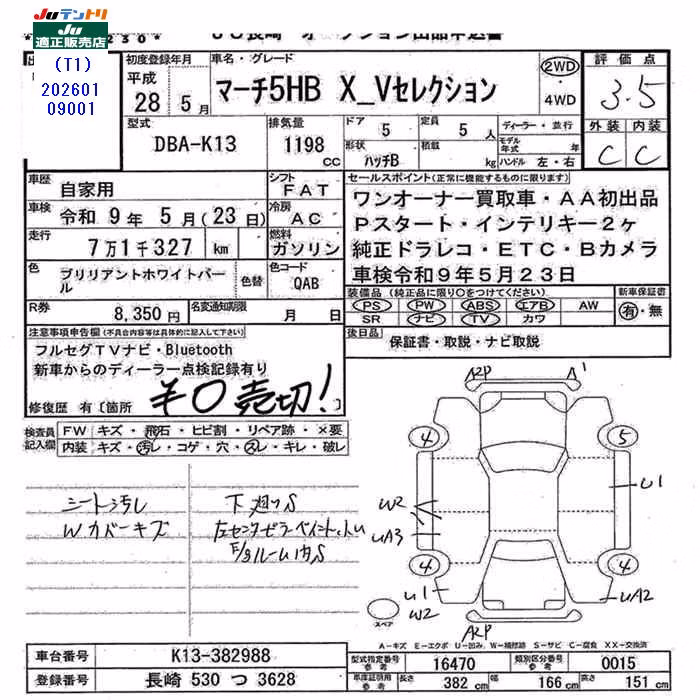 Juテントリ
JU 適正販売店
(T1)
202601
09001
初度登録年月
平成
28 5月
車名・グレード
マーチ5HB X_Vセレクション
2WD
・
4WD
評価点
3.5
型式
DBA-K13
排気量
1198 cc
ドア 5
定員 5 人
形状 ハッチB
積載 kg
ディーラー・並行
モデル年式 年
ハンドル 左・右
外装 内装
C C
車歴 自家用
シフト FAT
車検 令和 9年 5月(23日)
冷房 AC
走行 7万1千327 km
燃料 ガソリン
色 ブリリアントホワイトパール
色替
色コード QAB
R券 8,350円
名変通知期限 月 日
セールスポイント(正常に機能するものに限ります)
ワンオーナー買取車・AA初出品
Pスタート・インテリキー2ヶ
純正ドラレコ・ETC・Bカメラ
車検令和9年5月23日
装備品(純正品に限り○をつけてください)
PS PW ABS エアB AW
SR ナビ TV カワ
新車保証書
有・無
後日品 保証書・取説・ナビ取説
注意事項申告欄(不具合内容等は具体的に記入して下さい)
フルセグTVナビ・Bluetooth
新車からのディーラー点検記録有り
修復歴 有〔箇所
¥0 売切!
検査員記入欄
FW キズ・飛石・ヒビ割・リペア跡・×要
内装 キズ・汚レ・コゲ・穴・スレ・キレ・破レ
シート汚レ
Wカバーキズ
下廻りS
A2P A1
4 5
W2
UA3
U1
4 4
U1
W2
UA2
A2P
スペア
A-キズ E-エクボ U-凹み W-補修跡 S-サビ C-腐食 XX-交換済
車台番号 K13-382988
登録番号 長崎 530 つ 3628
型式指定番号 参考 16470
類別区分番号 参考 0015
車庫証明用 参考 長さ 382 cm 幅 166 cm 高さ 151 cm